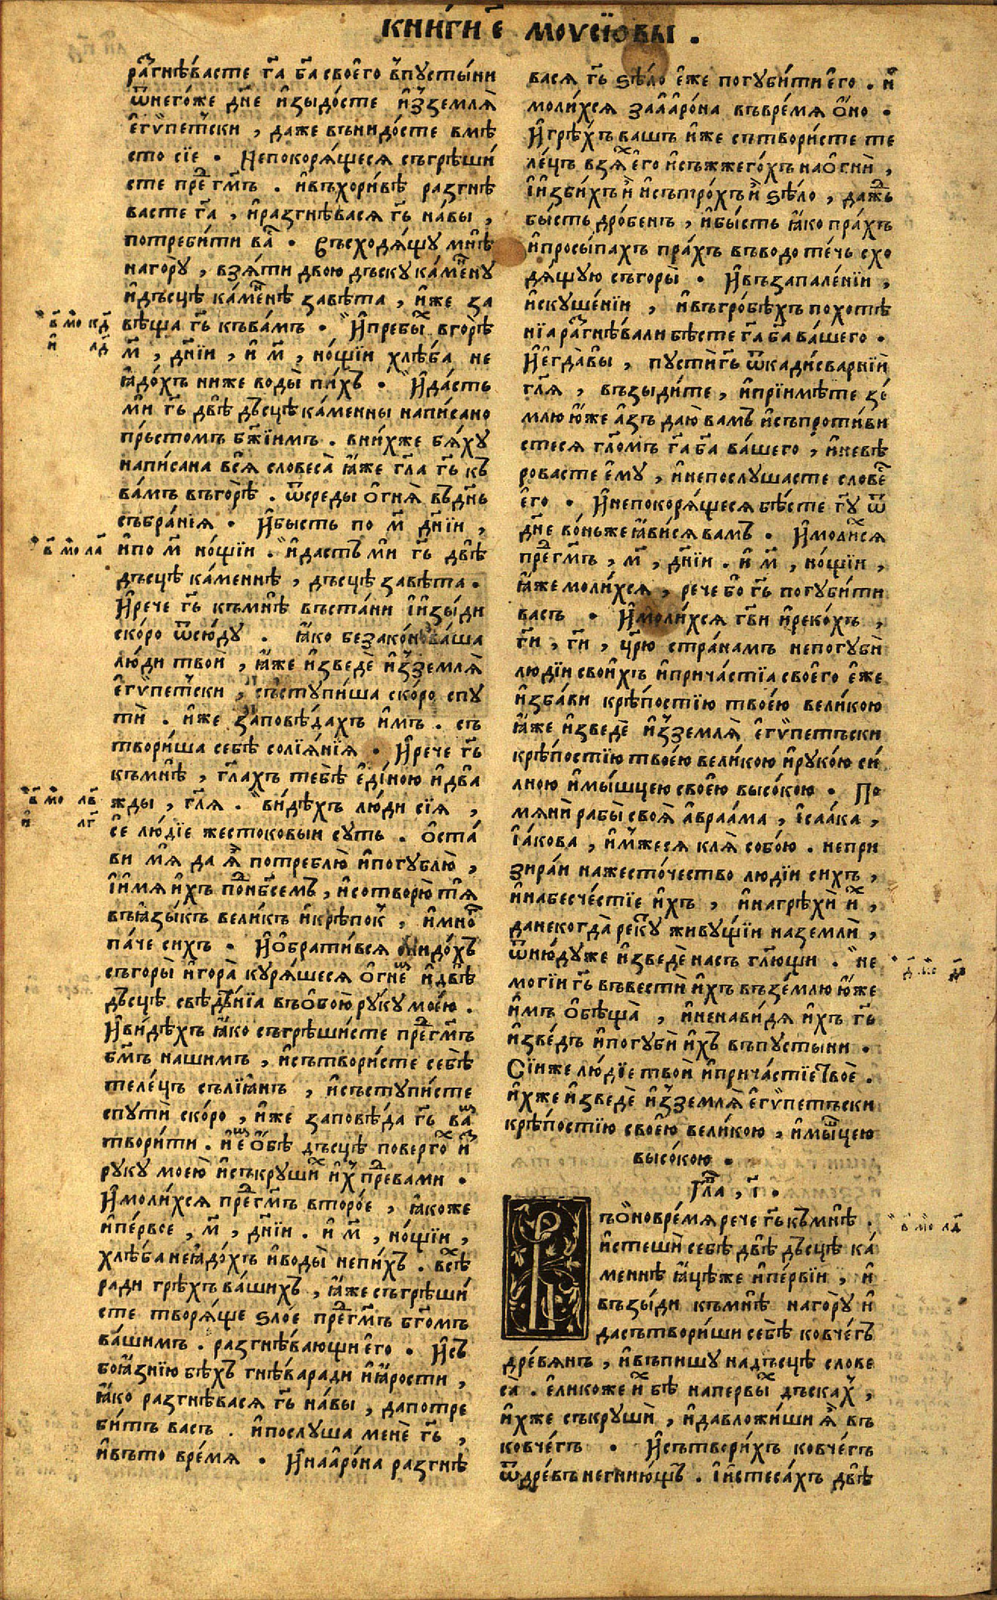 КНИ́ГИ Е҃ МОѴСІ́ѠВЫ .
ра̑гнѣ́васте га҃ ба҃ своего̀ в̾пꙋсты́ни
ѿнего́же дн҃е и҆зыдо́сте и҆з̾землѧ̀
є҆гѵ́петски , даже въни́досте вмѣ
сто сїѐ . Непокорѧ́щесѧ съгрѣши́
сте пре҆ гм҃ъ . и҆въхори́вѣ разгнѣ
васте га҃ , и҆разгнѣ́васѧ гь҃ на́вы ,
потреби́ти ва̑ . Съсходѧ́щꙋ мнѣ̀
нагорꙋ̀ , взѧ́ти двою̀ дъскꙋ ка́менꙋ
и҆дъсцѣ ка́менѣ завѣ́та , и҆́же за
вѣща̀ гь҃ къва́мъ . И҆пребы́х вгорѣ̀
м҃ , дні҃и , и҆ м҃ , но́щїи хлѣ́ба не
ꙗ҆до́хъ ниже воды̀ пи́хъ . И҆да́сть
ми гь҃ двѣ̀ дъсцѣ ка́менны написано
пръстомъ бж҃їимъ . вни́хже бѧ́хꙋ
написана всѧ̀ словеса̀ ꙗ҆́же гл҃а гь҃ къ
ва́мъ въгорѣ̀ . ѿсреды̀ о҆гнѧ̀ въдн҃ь
събра́нїѧ . И҆бысть по м҃ дні҃и ,
и҆по м҃ но́щїи . и҆дастъ ми гь҃ двѣ̀
дъсцѣ ка́меннѣ , дъсцѣ завѣ́та .
И҆рече гь҃ къмнѣ̀ въста́ни і҆изы́ди
ско́ро ѿсю́дꙋ . ꙗ҆́ко безако́н ва́ша
лю́ди твоѝ , ꙗ҆́же и҆зведѐ и҆з̾землѧ̀
є҆гѵ́петски , състꙋпи́ша ско́ро спꙋ
тѝ . и҆́же заповѣ́дахъ и҆мъ . съ
твори́ша себѣ̀ солїѧ́нїѧ . И҆рече гь҃
къмнѣ̀ , гл҃ахъ тебѣ̀ є҆ди́ною и҆два
жды , гл҃ѧ . ви́дѣхъ лю́ди сїѧ ,
сѐ лю́дїе жестоковыи сꙋть . о҆ста́
ви мѧ̀ да ѧ҆̀ потреблю̀ и҆погꙋблю̀ ,
і҆и́мѧ и҆хъ по́ нб҃семъ , и҆сотворю̀ тѧ̀
въꙗ҆зы́къ великъ и҆крѣпок̾ , и҆мно̑
па́че сихъ . И҆ѡ҆брати́всѧ снидо́хъ
съгоры̀ и҆гора̀ кꙋрѧ́шесѧ о҆гне̑ и҆двѣ̀
дъсцѣ свѣдѣ́нїа въѡ҆бою̀ рꙋ́кꙋ мое́ю .
И҆ви́дѣхъ ꙗ҆́ко съгрѣши́сте пре҆ гм҃ъ
бм҃ъ нашимъ , и҆сътвори́сте себѣ̀
теле́цъ сълїѧ́нъ , и҆състꙋпи́сте
спꙋтѝ ско́ро , и҆́же заповѣ́да гь҃ ва̑
твори́ти . и҆е̑ ѡ҆́бѣ дъсцѣ поверго̑ и҆з̾
рꙋкꙋ моею̀ и҆съкрꙋши̑ и҆х̾ пре́вами .
И҆моли́хсѧ пре҆ гм҃ъ второ́е , ꙗ҆коже
и҆пе́рвое , м҃ , дні҃и . и҆ м҃ , но́щїи ,
хлѣ́ба неꙗ҆до́хъ и҆воды̀ непи́хъ . всѣ̀
ради грѣ́хъ ва́шихъ , ꙗ҆́же съгрѣши́
сте творѧ́ще ѕло́е пре҆ гм҃ъ бг҃омъ
ва́шимъ . разгнѣвающи его . И҆съ
боꙗ҆́знїю бѣ́хъ гнѣ́варади и҆ꙗ҆́рости ,
ꙗ҆́ко разгнѣ́васѧ гь҃ на́вы , дапотре
би́тъ васъ . и҆послꙋша менѐ гь҃ ,
и҆въто вре́мѧ . И҆наа҆ро́на разгнѣ̀
васѧ гь҃ ѕѣ́ло е҆́же погꙋби́ти е҆го . и҆
моли́хсѧ заа҆аро́на въвре́мѧ о҆́но .
И҆грѣ́хъ вашъ и҆́же сътвори́сте те
ле́цъ взѧ̑ е҆го̀ и҆съжжего́хъ наѻ҆гнѝ ,
і҆избихъ и҆̀ и҆съпро́хъ и҆̀ ѕѣ́ло , да́жь
бы́сть дро́бенъ , и҆бы́сть ꙗ҆ко пра́хъ
и҆просы́пахъ пра́хъ въводо те́чь схо
дѧ́щꙋю съгоры̀ . И҆възапале́нїи ,
и҆скꙋше́нїи , и҆въгробѣ́хъ похотѣ́
нїа ра̑гнѣ́вали бѣ́сте га҃ ба҃ ва́шего .
И҆е҆гда̀вы , пꙋстѝ гь҃ ѿкади́сварни́й
гл҃ѧ , възыди́те , и҆прїи́мѣте зе́
млю ю҆́же а҆́зъ даю̀ вамъ и҆съпроти́ви
стесѧ гл҃омъ га҃ ба҃ ва́шего , и҆невѣ
ровасте е҆мꙋ̀ , и҆непослꙋшасте слове̑
е҆го̀ . И҆непокорѧ́щесѧ бѣ́сте гꙋ҃ ѿ
дн҃е во́ньже ꙗ҆ви́сѧ вамъ . И҆моли̑сѧ
пре҆ гм҃ъ , м҃ , дні҃и . и҆ м҃ , но́щїи ,
ꙗ҆́же моли́хсѧ , рече бо гь҃ погꙋби́ти
васъ . И҆моли́хсѧ гв҃и и҆реко́хъ ,
ги҃ , ги҃ , цр҃ю стра́намъ непогꙋбѝ
людїи свои́хъ и҆прича́стїа своего̀ е҆же
и҆зба́ви крѣ́постїю твое́ю вели́кою
ꙗ҆́же и҆зведѐ и҆з̾землѧ̀ е҆гѵ́петъски
крѣ́постїю твое́ю вели́кою и҆рꙋко́ю си́
лною и҆мы́шцею свое́ю высо́кою . По
мѧнѝ рабы̀ своѧ̀ а҆враа́ма , і҆саа́ка ,
і҆а́кова , и҆́мжесѧ клѧ̀ собо́ю . непри
зира́и нажесто́чество людїи сихъ ,
и҆набесче́стїе и҆хъ , и҆нагрѣхи и҆̑ ,
данекогда̀ рекꙋ̑ живꙋ́щїи наземлѝ ,
ѿню́дꙋже и҆зведѐ насъ гл҃ющи . не
могїи гь҃ въвести̑ и҆хъ възе́млю ю҆́же
и҆мъ ѡ҆бѣща̀ , и҆ненави́дѧ и҆хъ гь҃
и҆зведъ и҆погꙋби и҆хъ въпꙋсты́ни .
Сїиже лю́дїе твоѝ и҆прича́стїе твоѐ .
и҆хже и҆зведѐ и҆з̾землѧ̀ е҆гѵ́петъски
крѣ́постїю свое́ю вели́кою , и҆мы́шцею
высо́кою .
Гла҃ , і҃ .
Въѻ҆́новре́мѧ рече гь҃ къмнѣ̀ .
и҆стешѝ себѣ̀ двѣ̀ дъсцѣ ка́
меннѣ ꙗ҆́цѣже и҆пе́рвїи , и҆
възы́ди къмнѣ̀ нагорꙋ̀ и҆
дасътвори́ши себѣ̀ ковче́гъ
дре́вѧнъ , и҆въпишꙋ надъсцѣ слове
са̀ . е҆ли́коже и҆̑ бѣ̀ напервы̑ дъска́х̾ ,
и҆хже съкрꙋшѝ , и҆давложи́ши ѧ҆̀ въ
ковче́гъ . И҆сътвори́хъ ковче́гъ
ѿдре́въ негнию́щь . І҆истеса́хъ двѣ̀
в҃ мо҃ кд҃
и҆ лд҃
в҃ мо҃ ла҃
в҃ мо҃ лв҃
и҆ лг҃
в҃ мо҃ лд҃